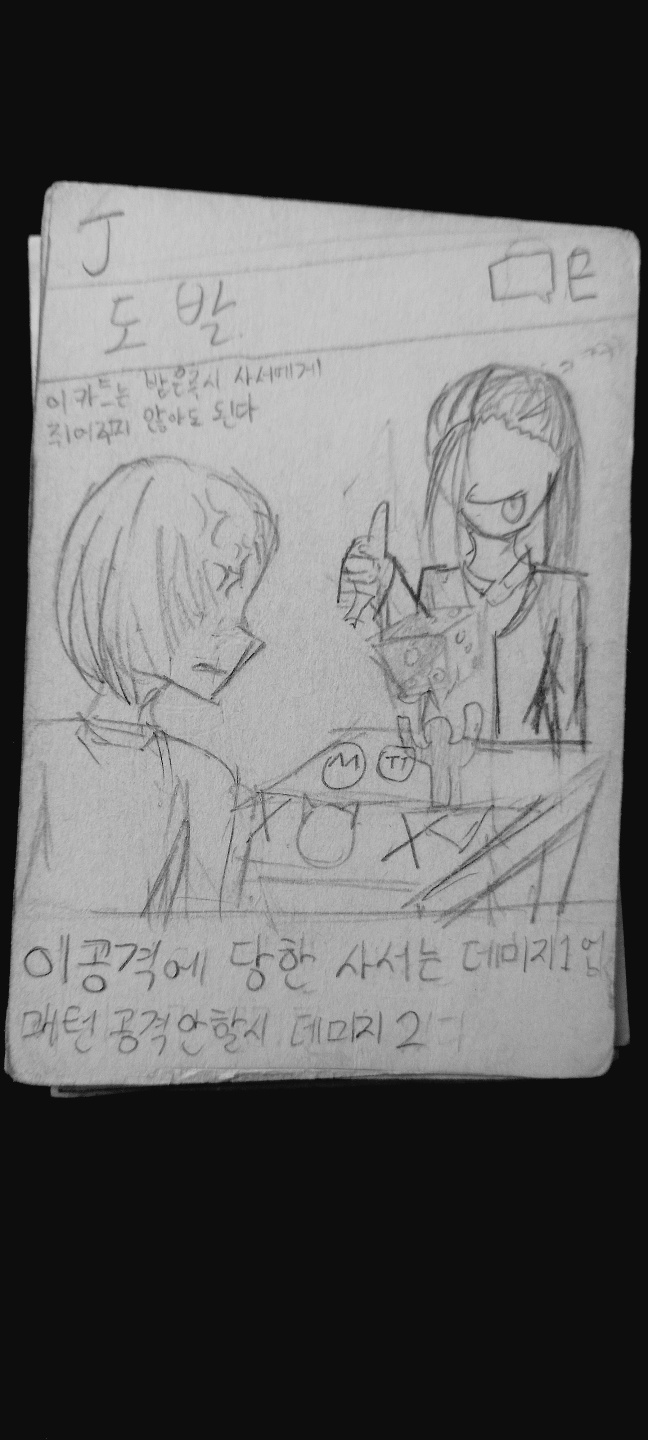 J
도발
E
이 카드는 받은즉시 사서에게
쥐어주지 않아도 된다
M TT
이공격에 당한 사서는 데미지1업
매턴 공격안할시 데미지 2